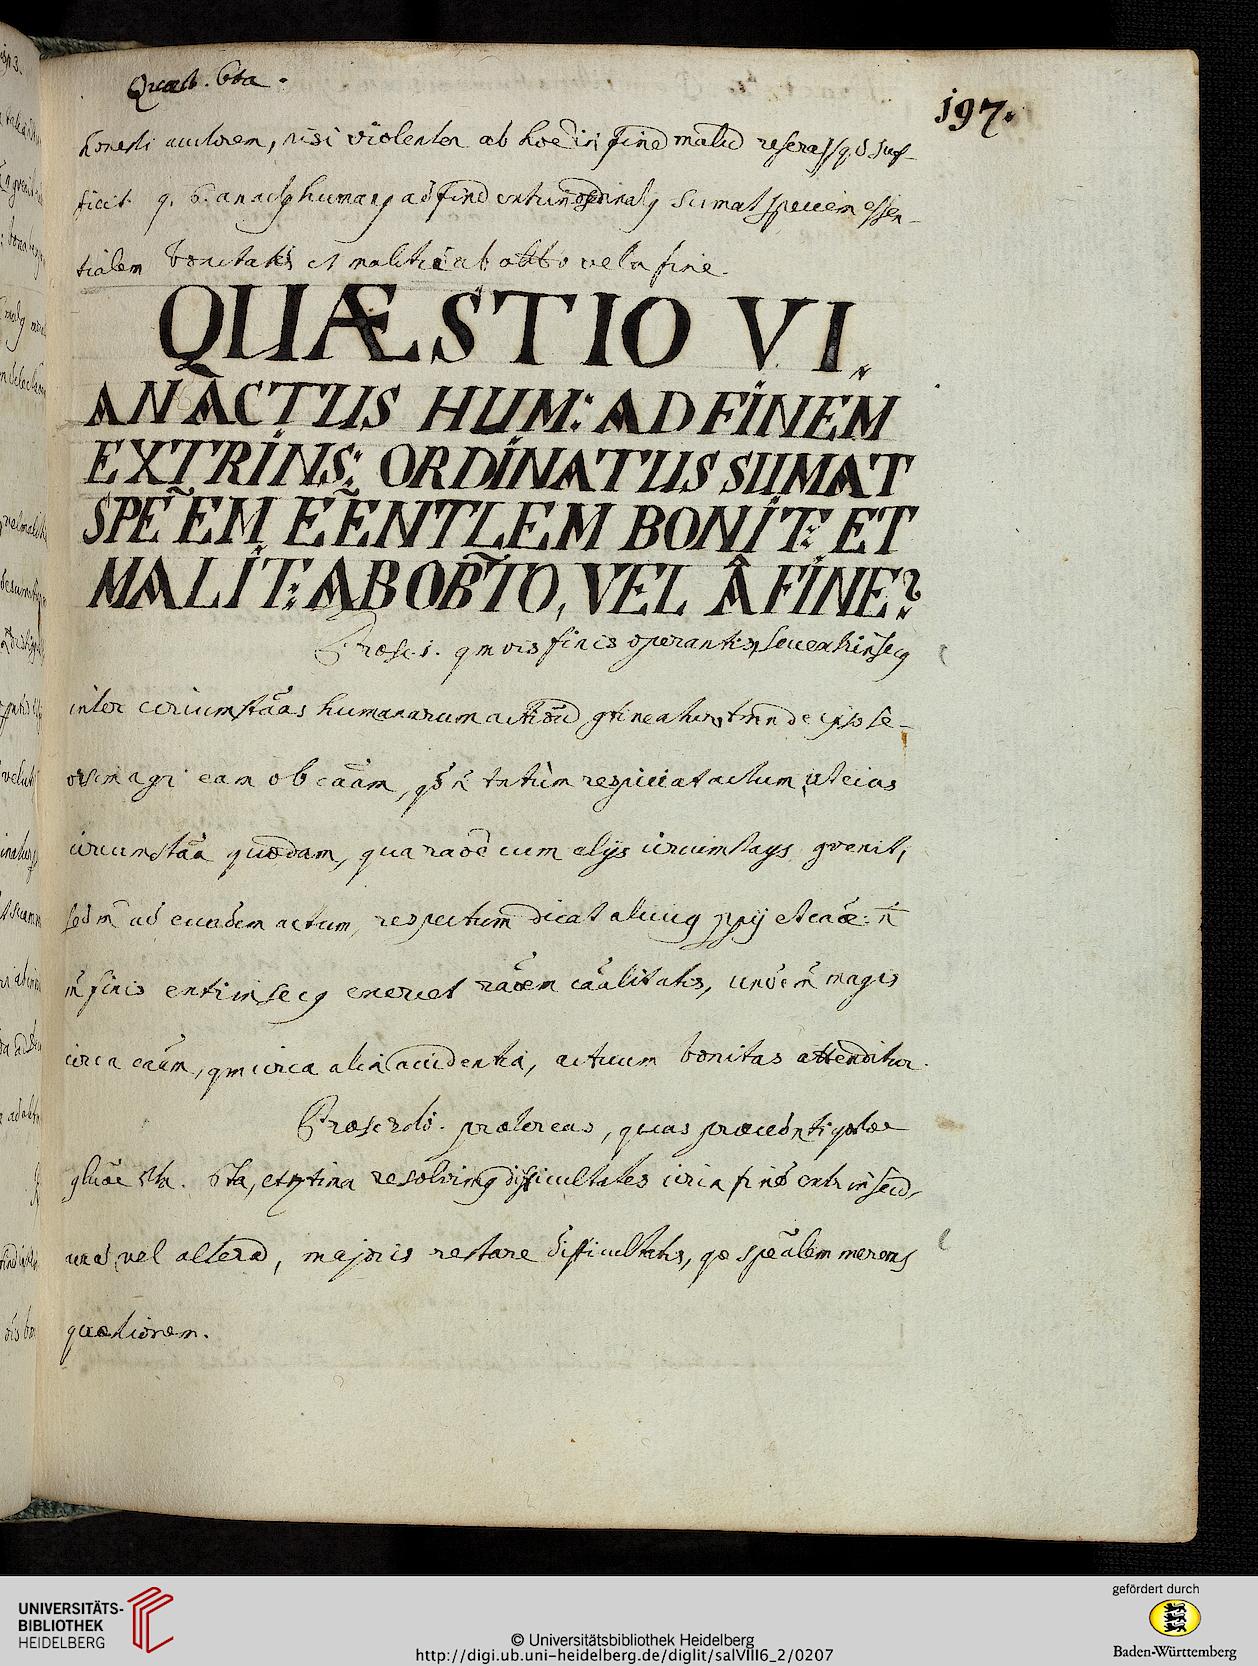 Quæst. 6ta.
197.
honesti autorem, nisi violenter ab hoc in finē malū
ficit. q. 6. an actus humanus ad finē extrinsecū ordinatus sumat speciem essen-
tialem bonitatis et malitiæ ab obto vel a fine.
QUÆSTIO VI.
AN ACTUS HUM: AD FINEM
EXTRINS: ORDINATUS SUMAT
SPE~EM EE~NTLEM BONIT: ET
MALIT: AB OBT~O, VEL Â FINE?
Præsc. 1. qmvis finis operantis, seu extrinsecq
inter circumstāas humanarum actiōū gtineatur, tmn de ipso se-
orsim agi eam ob cāam, qd n~ tntùm respiciat actum, ut eius
circumstāa quædam, qua raōe cum alijs circumstāijs gvenit,
sed m~ ad eundem actum, respectum dicat alicuiq ppij et caōe: n~
m~ finis extrinsecq exercet raōem cāalitatis, unde m~ magis
circa eam, qm circa alia accidentia, actuum bonitas attenditur.
Præsc 2dò. præter eas, quas præcedenti
6ta, et resolvimq difficultates circa finē extrinsecū,
unā, vel alterā, majoris restare difficultatis, quæ speālem merentq
quæstionem.
UNIVERSITÄTS-
BIBLIOTHEK
HEIDELBERG
© Universitätsbibliothek Heidelberg
http://digi.ub.uni-heidelberg.de/diglit/salVIII6_2/0207
gefördert durch
Baden-Württemberg